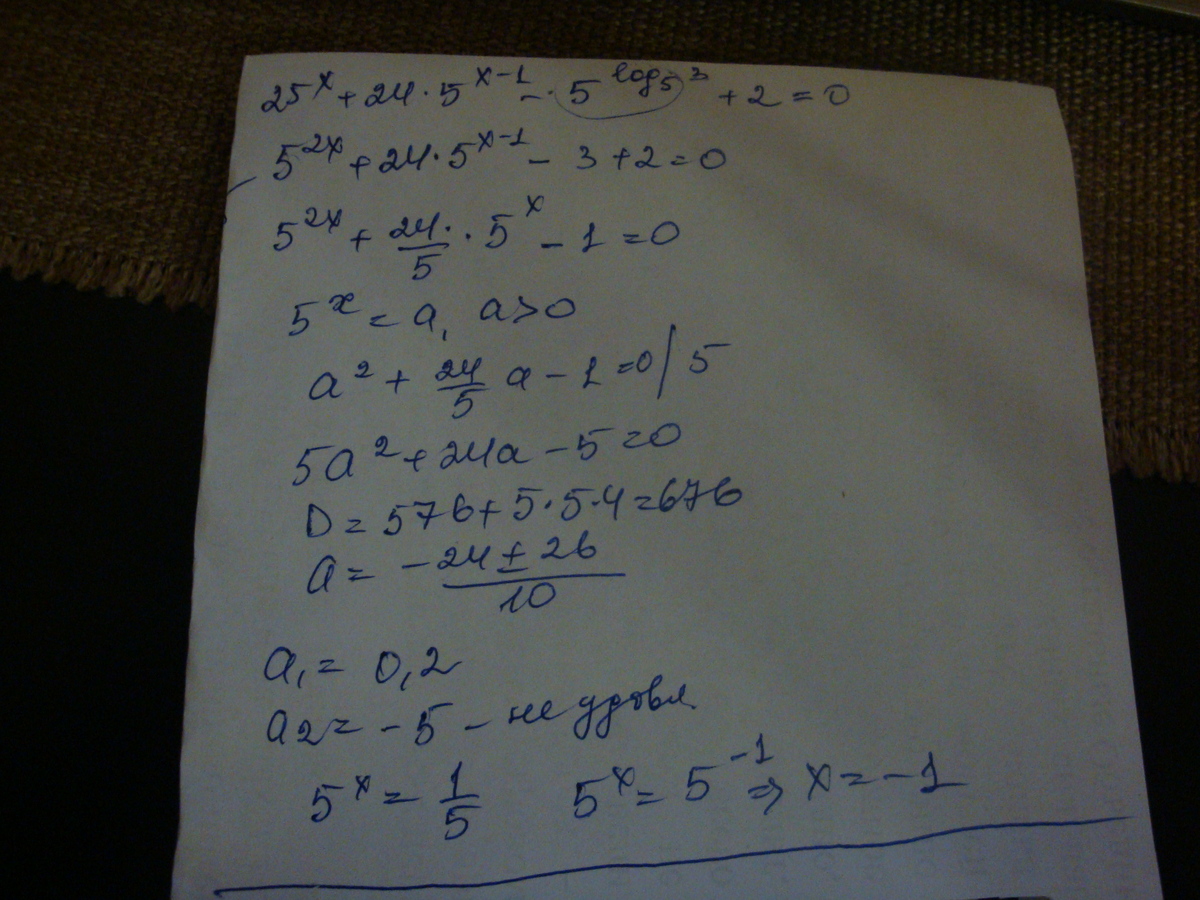 25^x + 24 · 5^(x-1) - · 5^(log₅3) + 2 = 0
5^(2x) + 24 · 5^(x-1) - 3 + 2 = 0
5^(2x) + 24/5 · 5^x - 1 = 0
5^x = a, a > 0
a² + 24/5 a - 1 = 0 / 5
5a² + 24a - 5 = 0
D = 576 + 5 · 5 · 4 = 676
a = (-24 ± 26)/10
a₁ = 0,2
a₂ = -5 - не удовл.
5^x = 1/5 5^x = 5^(-1) ⇒ x = -1